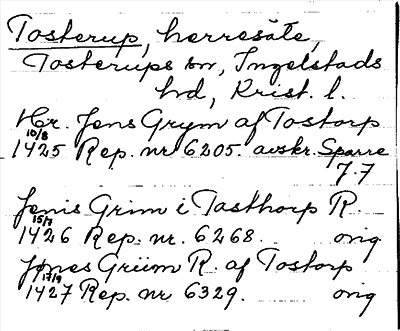 Tosterup, herresäte,
Tosterups sn, Ingelstads
hd, Krist. l.
Hr. Jens Grym af Tostorp
10/8
1425 Rep. nr 6205. avskr. Sparre
7.7
Jenis Grim i Tasthorp R.
15/7
1426 Rep. nr. 6268. orig
Jønes Grüm R. af Tostorp
17/9
1427 Rep. nr 6329. orig